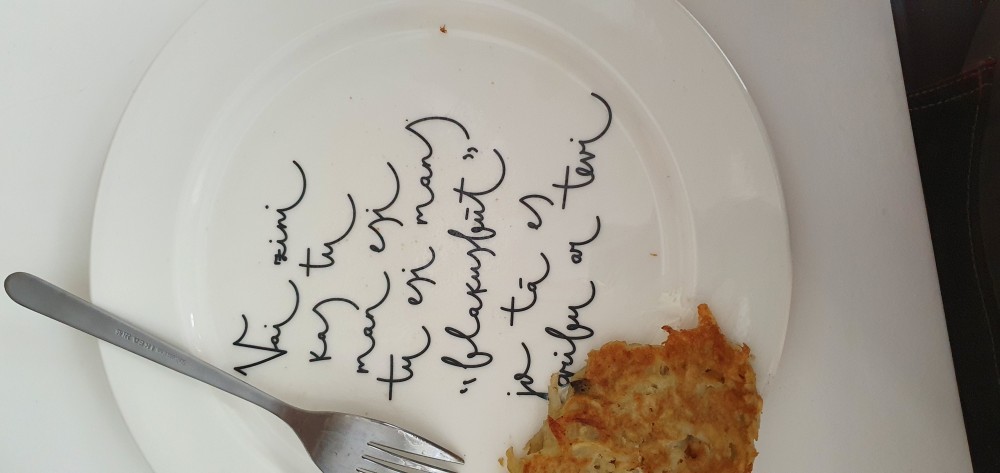 Vai zini
kas tu
man esi
tu esi man
"blakusbūt"
jo tā es
gribu ar tevi